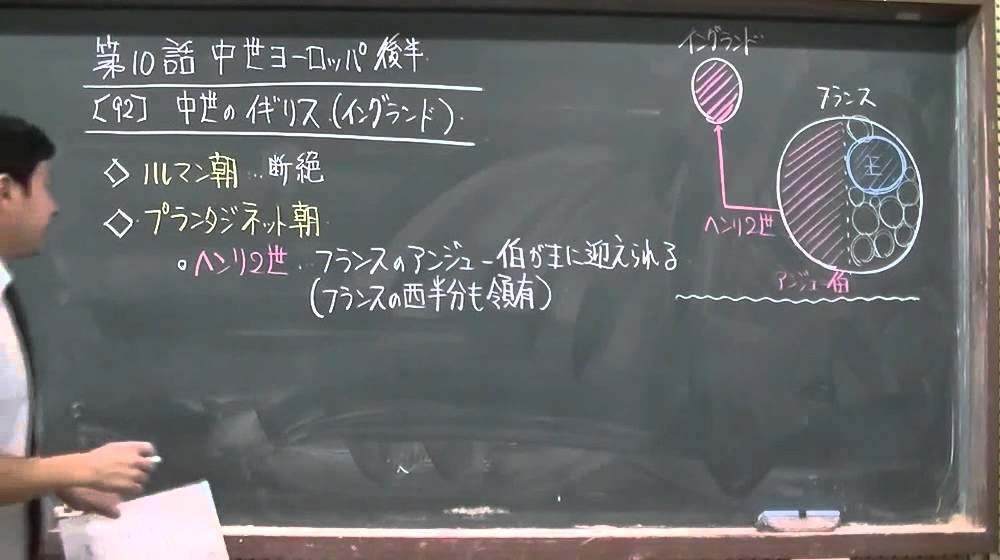 第10話 中世ヨーロッパ後半
[92] 中世のイギリス(イングランド)
◇ ノルマン朝…断絶
◇ プランタジネット朝
○ ヘンリ2世…フランスのアンジュー伯が王に迎えられる
(フランスの西半分も領有)
イングランド
フランス
王
ヘンリ2世
アンジュー伯